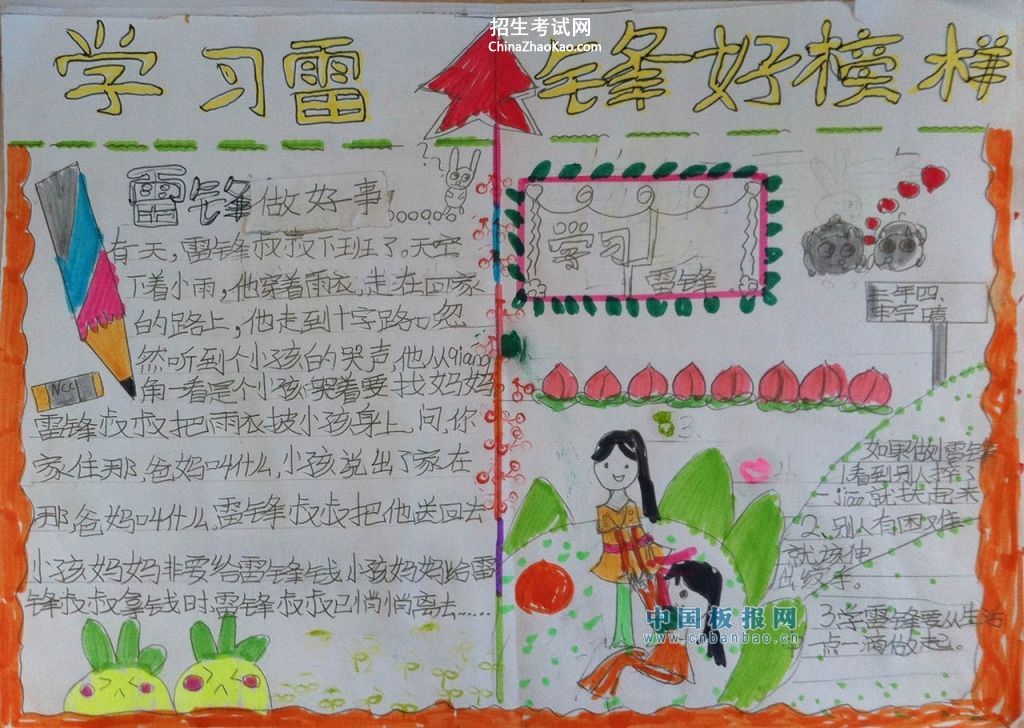 招生考试网
ChinaZhaoKao.com
学习雷锋好榜样
雷锋做好事
有一天,雷锋叔叔下班了。天空
下着小雨,他穿着雨衣走在回家
的路上,他走到十字路口,忽
然听到个小孩的哭声,他从qiang
角一看是个小孩哭着要找妈妈
雷锋叔叔把雨衣披小孩身上,问,你
家住那,爸妈叫什么,小孩说出了家在
那,爸妈叫什么。雷锋叔叔把他送回去
小孩妈妈非要给雷锋钱,小孩妈妈给雷
锋叔叔拿钱时,雷锋叔叔已悄悄离去……
学习
雷锋
如果做小雷锋
1看到别人摔了
jiao就扶起来
2、别人有困难
就该伸
出缓手。
3.学雷锋要从生活
一点一滴做起。
中国板报网
www.cnbanbao.cn